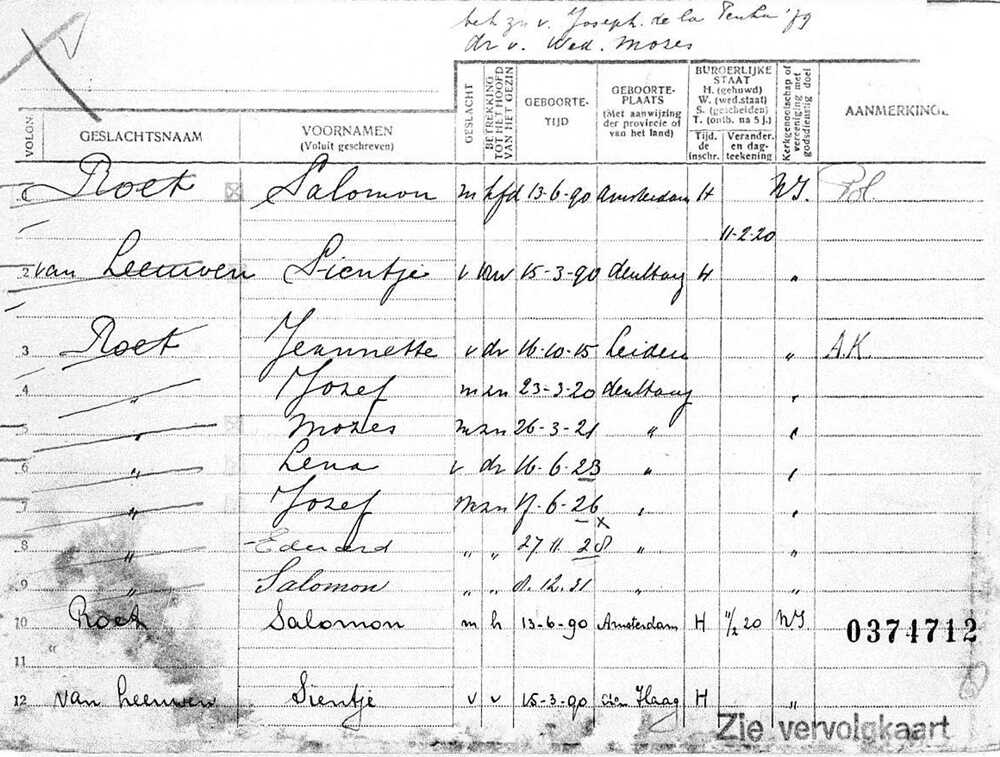 beh. zn v. Joseph. de la Penha '79
dr v. Wed. Mozes
VOLGN.
GESLACHTSNAAM
VOORNAMEN
(Voluit geschreven)
GESLACHT
BETREKKING TOT HET HOOFD VAN HET GEZIN
GEBOORTE-
TIJD
GEBOORTE-
PLAATS
(Met aanwijzing
der provincie of
van het land)
BURGERLIJKE
STAAT
H. (gehuwd)
W. (wed.staat)
S. (gescheiden)
T. (ontb. na 5 j.)
Tijd. de inschr.
Verander. en dag-teekening
Kerkgenootschap of vereeniging met godsdienstig doel
AANMERKING
Roet Salomon m hfd 13-6-90 Amsterdam H NI.
11-2-20
2 van Leeuwen Sientje v vrw 15-3-90 den Haag H "
3 Roet Jeannette v dr 16-10-15 Leiden " A.K.
4 " Jozef m zn 23-3-20 den Haag "
5 " Mozes m zn 26-3-21 " "
6 " Lena v dr 16-6-23 " "
7 " Jozef m zn 17-6-26 " "
x
8 " Eduard " " 27 11 28 " "
9 " Salomon " " 8.12.31 " "
10 Roet Salomon m h 13-6-90 Amsterdam H 11/2 20 NI
0374712
"
11
12 van Leeuwen Sientje v v 15-3-90 den Haag H "
Zie vervolgkaart